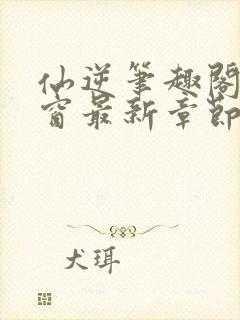 仙逆笔趣阁
窗最新章节
犬珥